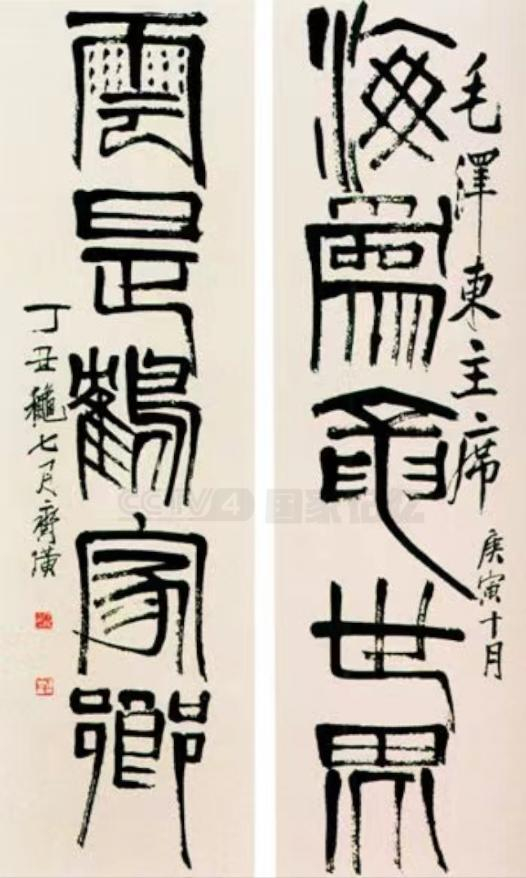 毛澤東主席
庚寅十月
海為龍世界
雲是鶴家鄉
丁丑穐七月齊璜
CCTV4 国家记忆